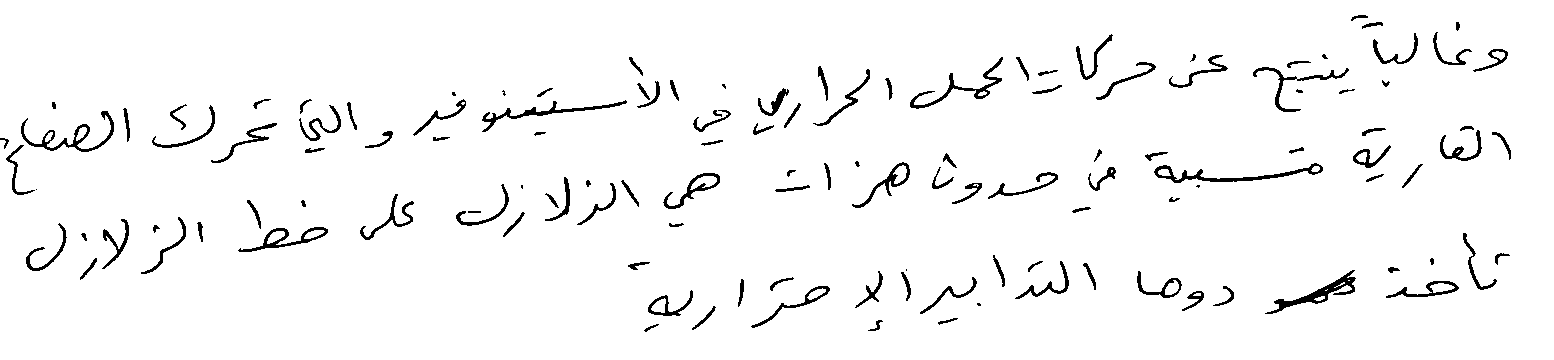 وغالباً ينتج عن حركات الحمل الحراري في الأستينوفير والتي تحرك الصفائح
القارية متسببة في حدوث هزات هي الزلازل على خط الزلازل
تأخذ دوما التدابير الإحترازية